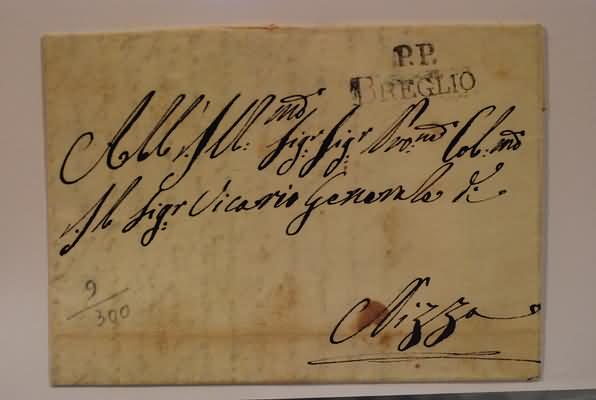 P.P.
BREGLIO
All'Ill:mo Sigr Sigr Pro:ne Col:mo
Il Sigr Vicario Generale di
Nizza
9/300